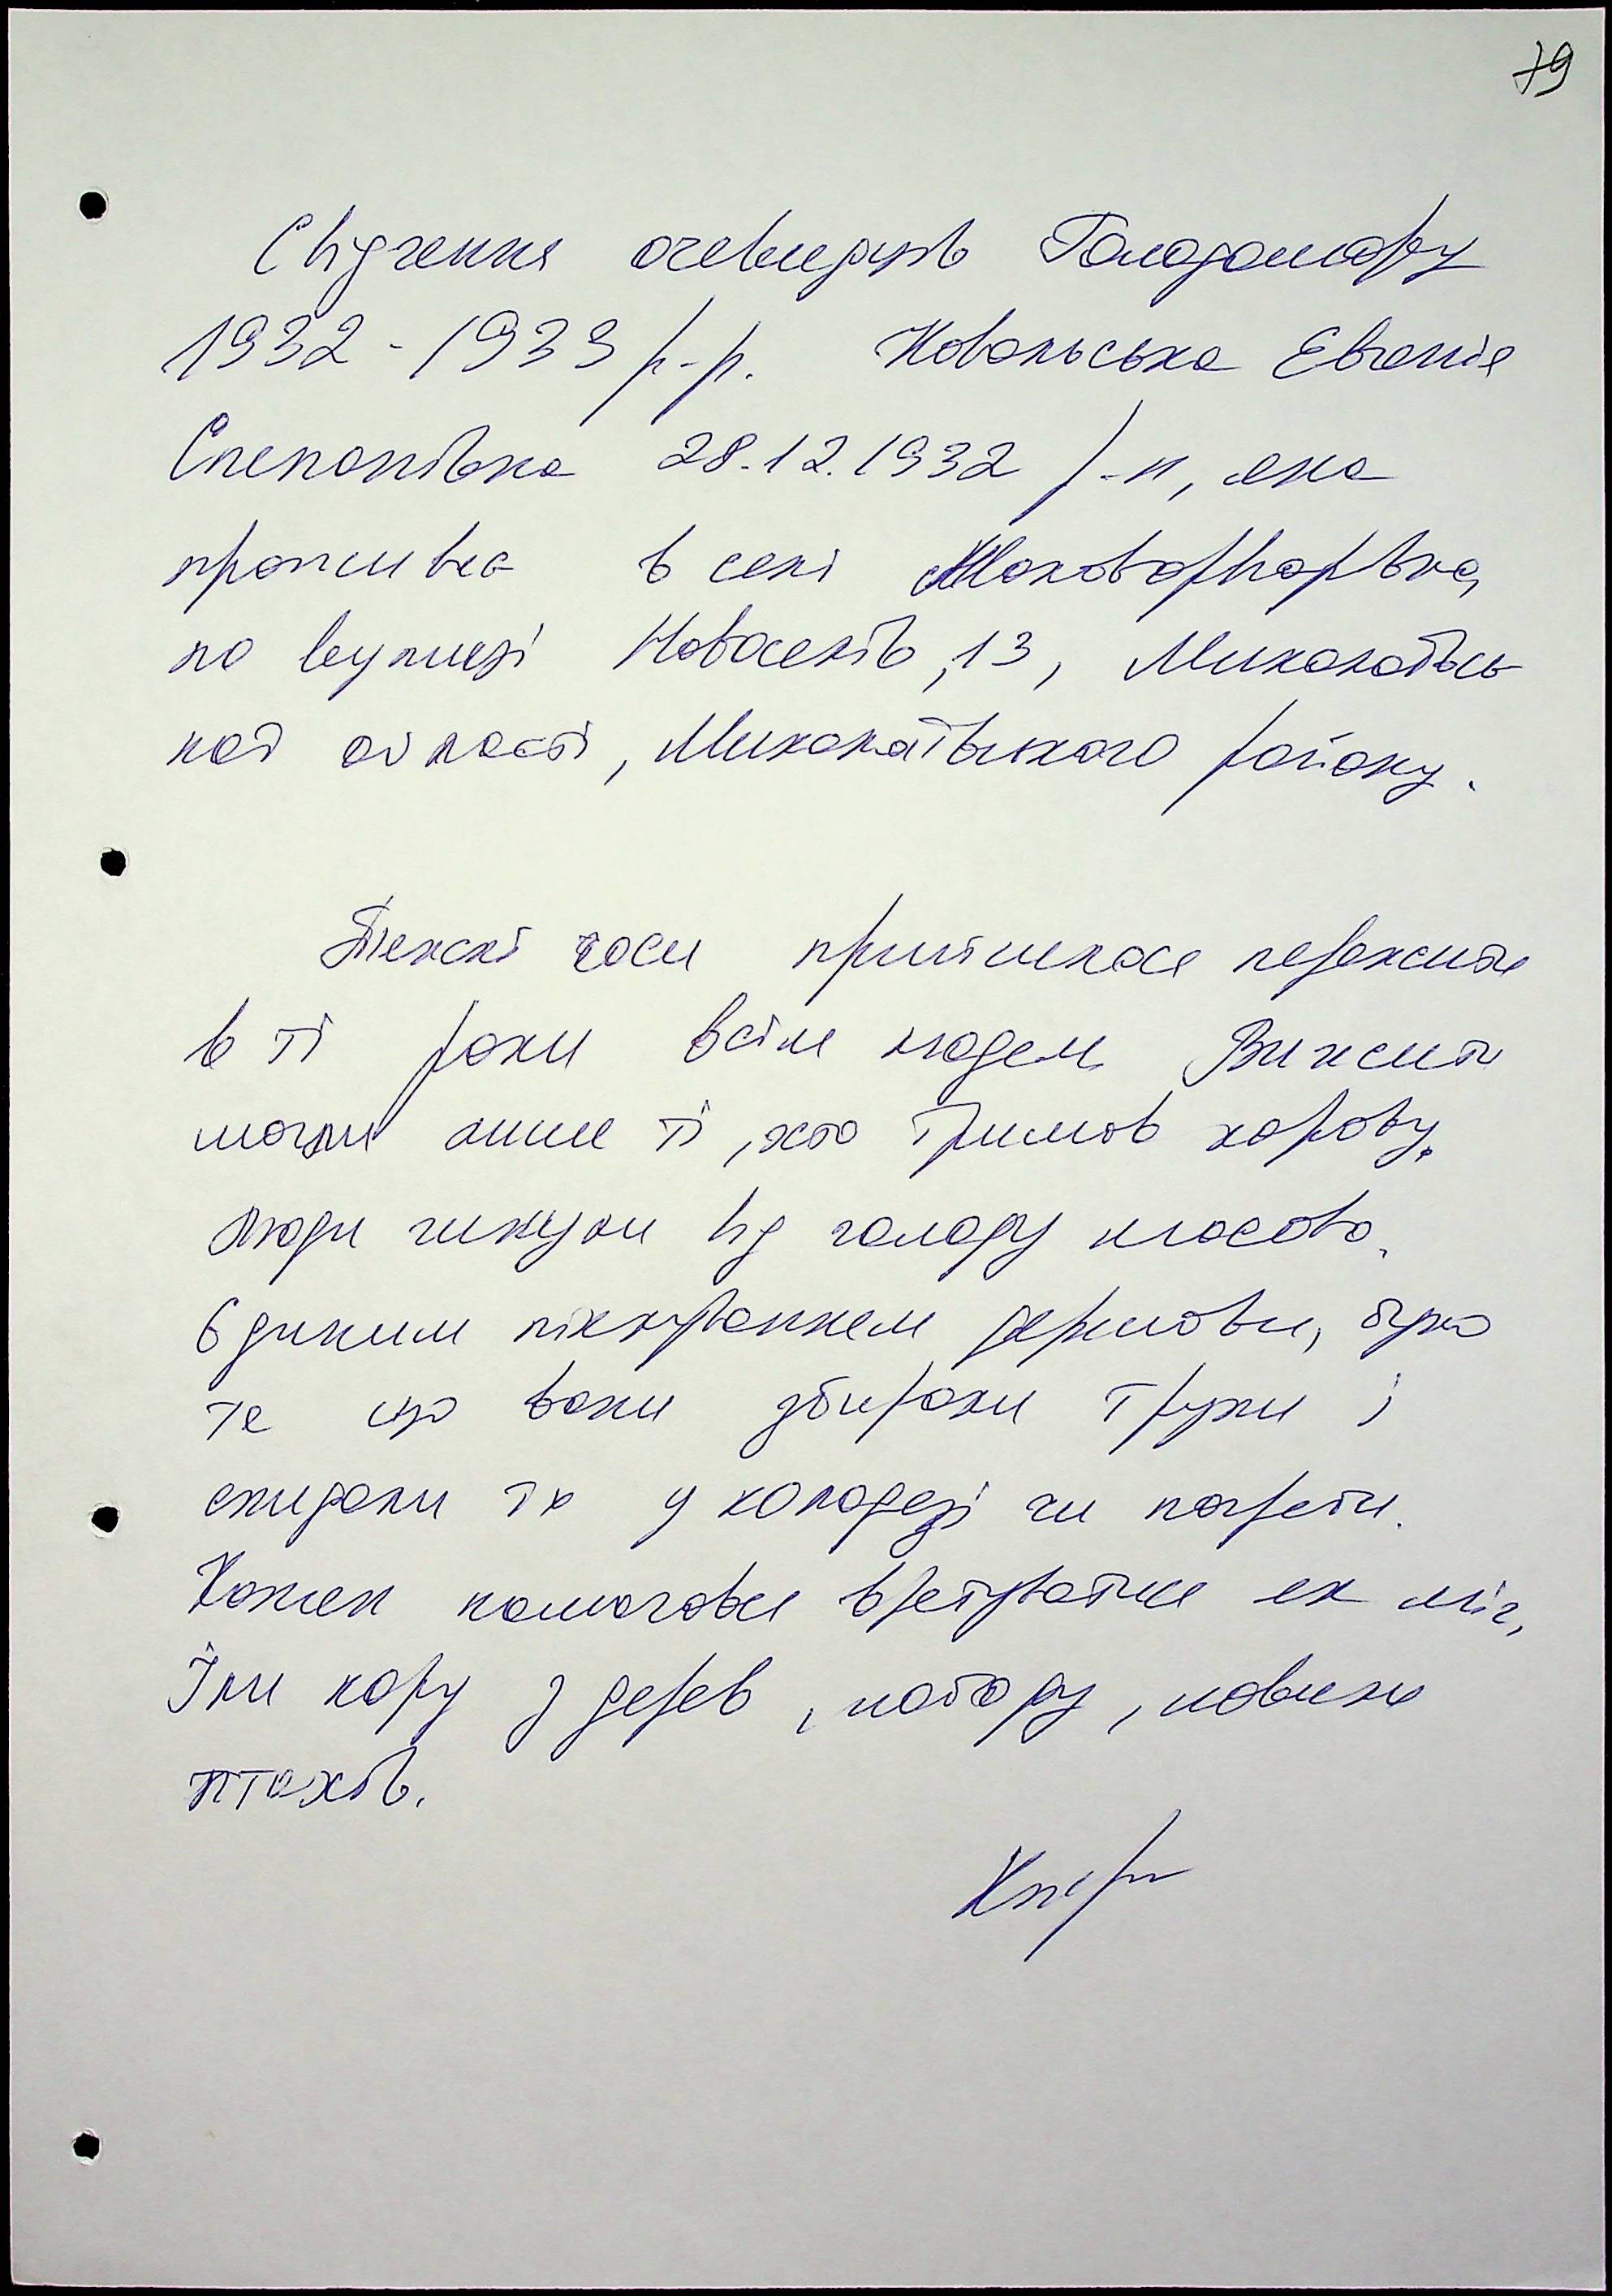 79
Свідчення очевидців Голодомору
1932-1933 р-р. Ковальська Евгенія
Степанівна 28.12.1932 р-н, яка
проживає в селі
по вулиці Новоселів, 13, Миколаївсь
кої області, Миколаївського району.
Тяжкі часи прийшлося пережити
в ті роки всім людем. Вижити
могли лише ті, хто тримав корову.
Люди гинули від голоду масово.
Єдиним піклуванням держави, було
те що вони збирали трупи і
скидали їх у колодезі чи погреби.
Кожен намагався врятуватися як міг,
Їли кору з дерев, лободу, ловили
птахів.